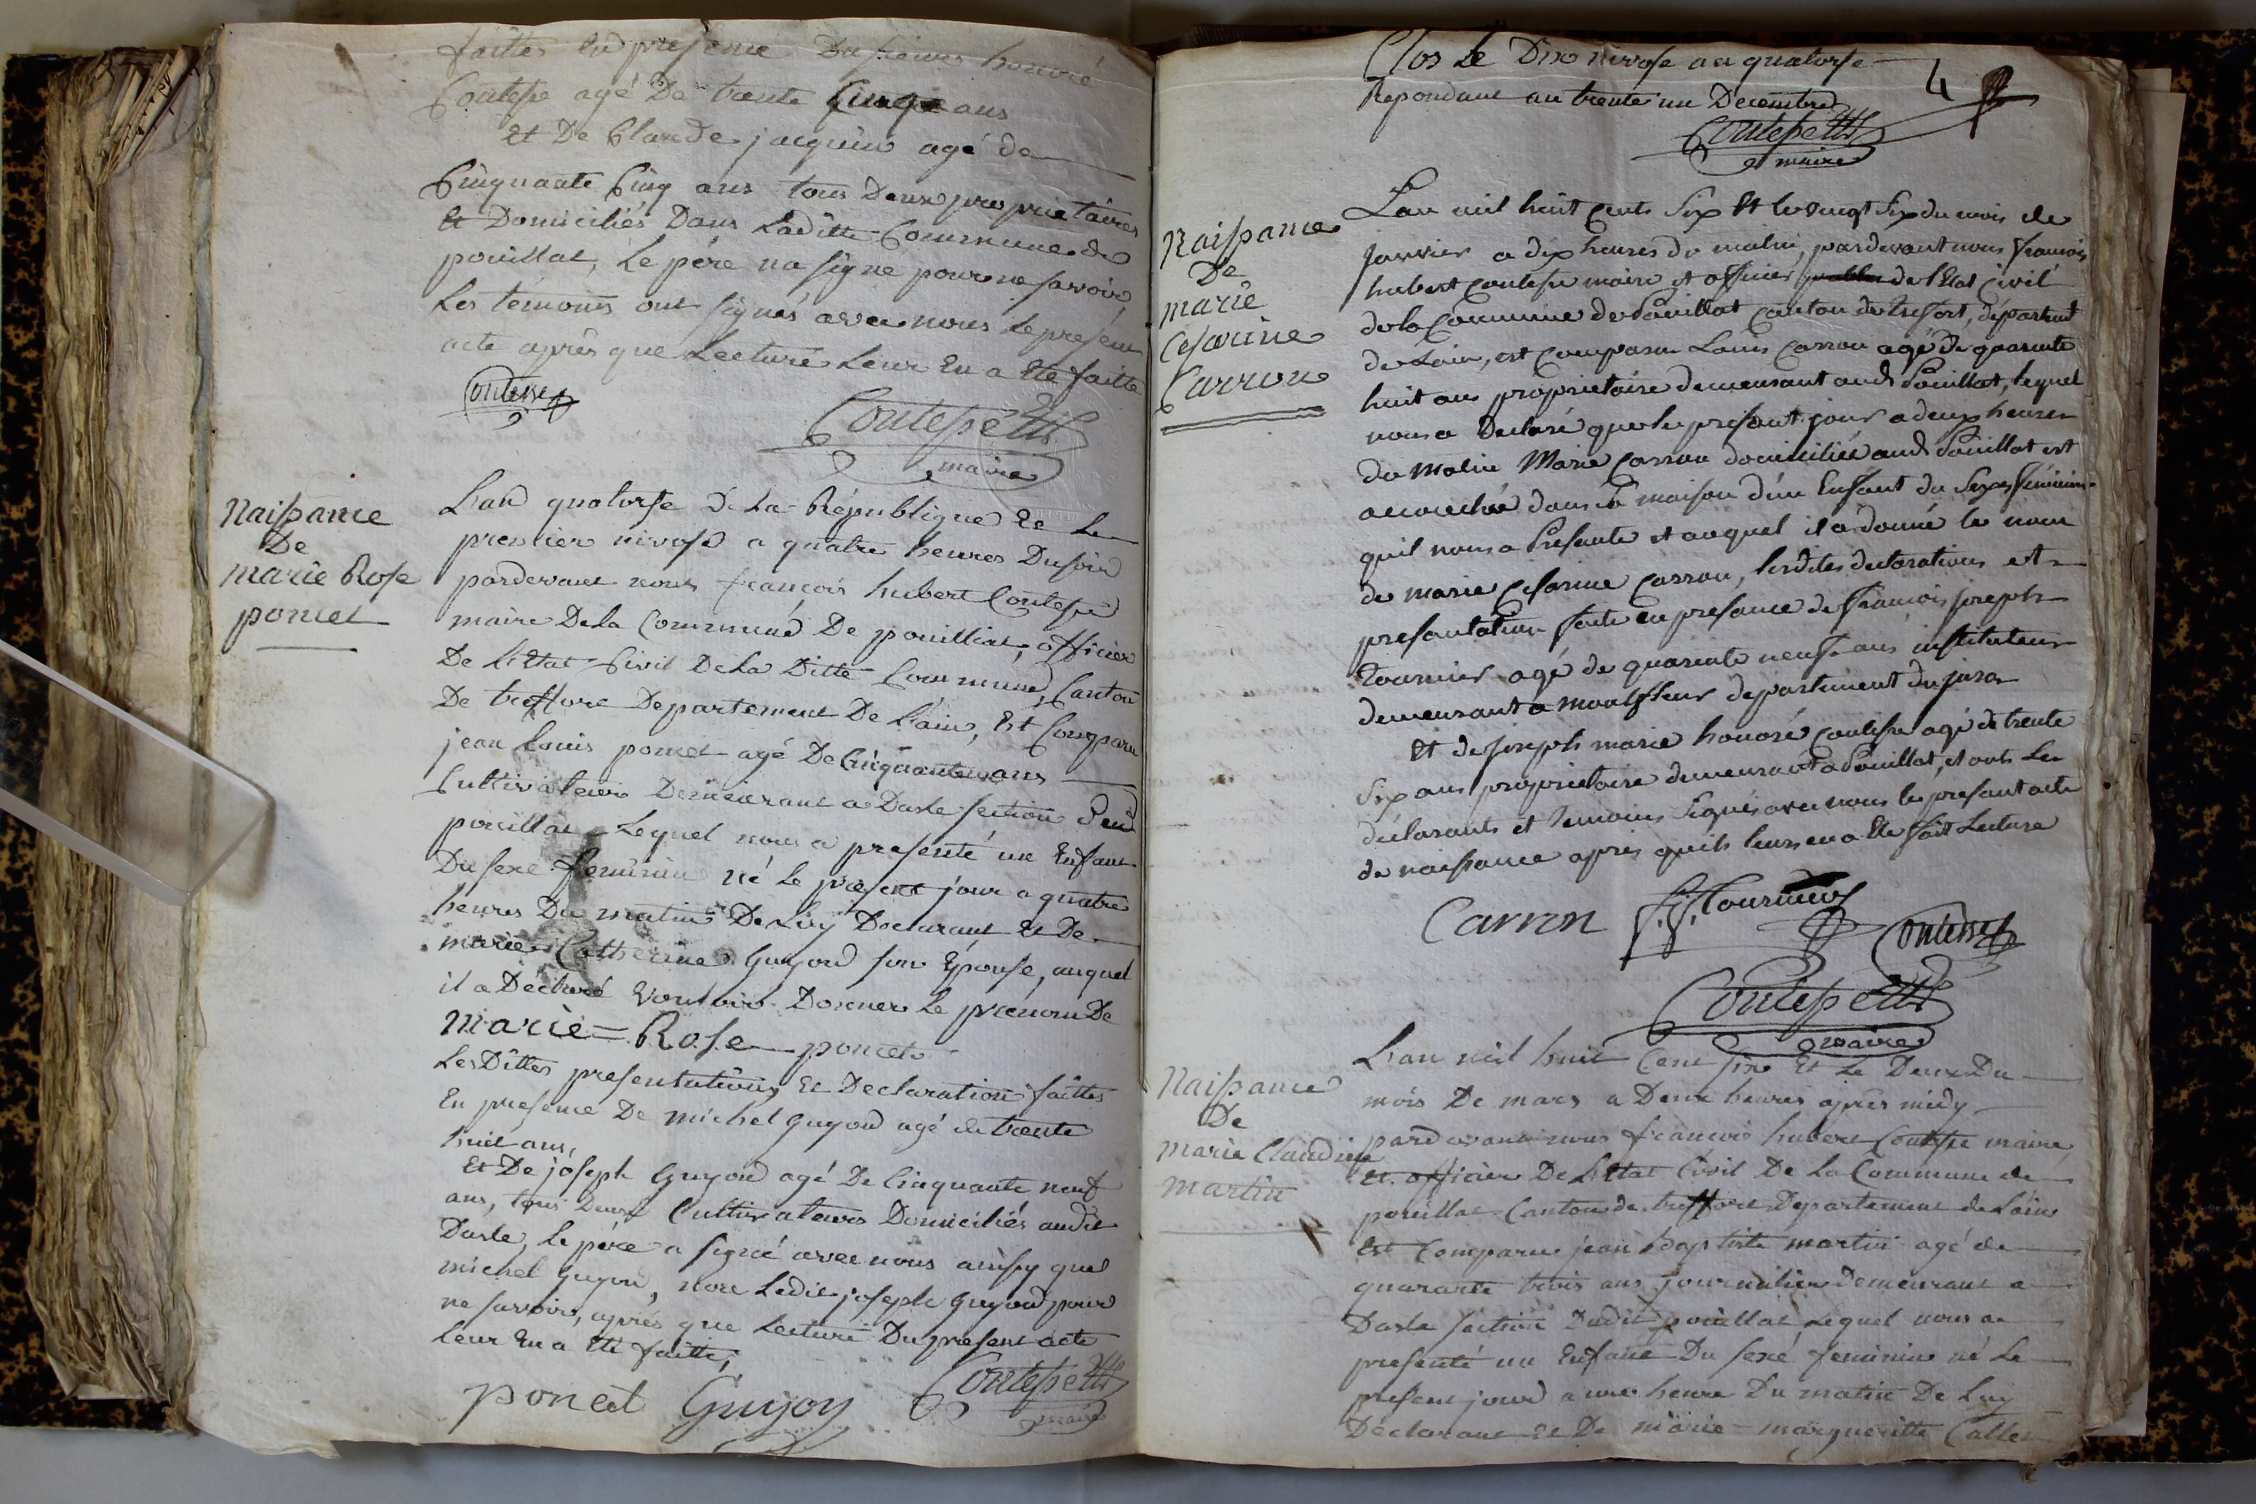 faittes En presence Du sieur honoré
Contesse agé De trente Cinq ans
Et De Claude jacquin agé de
Cinquante Cinq ans tous Deux proprietaires
Et Domiciliés Dans Laditte Commune de
pouillat, Le pére na signé pour ne savoir,
Les témoins ont signés avec nous Le presént
acte aprés que Lecture Leur En a Eté faitte
Contesse
Contesse
maire
Naissance
De
marie Rose
poncet
L'an quatorse De La République Et Le
premier nivose a quatre heures Du soir
pardevant nous françois hubert Contesse
maire De La Commune De pouilliat, officier
De L'Etat Civil De La Ditte Commune, Canton
De treffort Departement De L'ain, Est Comparu
jean Louis poncet agé De Cinquante ans
Cultivateur Demeurant a Dasle section Dud
pouillat Lequel nous a presenté un Enfant
Du sexe feminin né Le present jour a quatre
heures Du matin De Luy Declarant Et De
marie Catherine Guyod son Epouse, auquel
il a Déclaré Vouloir Donner Le prénom De
Marie = Rose poncet
Les Dittes presentations Et Declaration faittes
En presence De michel guyod agé de trente
huit ans,
Et De joseph Guyod agé De Cinquante neuf
ans, tous Deux Cultivateurs Domiciliés audit
Dasle, Le pére a signé avec nous ainsy que
michel Guyod, non Ledit joseph Guyod pour
ne savoir, aprés que Lecture Du present acte
Leur En a Eté faitte,
poncet Guyon
Contesse
maire
Clos Le Dix nivose an quatorse
Repondant au trente un Decembre
4
Contesse
maire
Naissance
De
marie
Cesarine
Carron
Lan mil huit cents Six et le vingt Six du mois de
Janvier a dix heures du matin, pardevant nous francois
hubert contesse maire et officier de l'Etat civil
de la Commune de Pouillat Canton de tresfort, départemt
de Lain, est comparu Louis Carron agé de quarante
huit ans proprietaire demeurant aud. Pouillat, lequel
nous a declaré que le presant jour a deux heures
du matin Marie Carron domiciliée aud. Pouillat est
accouchée dans sa maison d'un Enfant du Sexe féminin
quil nous a Présanté et auquel il a donné le nom
de marie Césarine Carron, lesdites déclarations et
presantation faite en presance de francois joseph
Tournier agé de quarante neuf ans instituteur
demeurant a montfleur département du jura
Et de joseph marie honoré contesse agé de trente
six ans proprietaire demeurant a Pouillat, et ont les
déclarants et temoins signés avec nous le presant acte
de naissance apres quils leurs en a Eté fait Lecture
Carron f. j. Tournier
Contesse
Contesse
maire
Naissance
De
Marie Claudine
Martin
L'an mil huit Cent six Et Le Deux Du
mois De mars a Deux heures aprés midy
pardevant nous francois hubert Contesse maire
Et officier De L'Etat Civil De La Commune de
pouillat Canton de treffort Departement de Lain
Est Comparu jean Baptiste martin agé de
quarante trois ans journalier Demeurant a
Dasle section Dudit pouillat Lequel nous a
presenté un Enfant Du sexé feminin né Le
present jour a une heure Du matin De Luy
Déclarant Et De marie margueritte